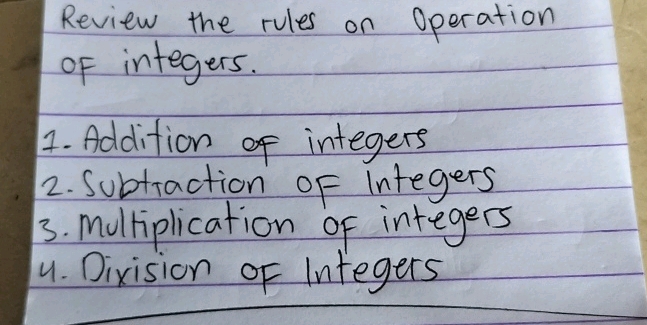 Review the rules on Operation
of integers.
1. Addition of integers
2. Subtraction of Integers
3. Multiplication of integers
4. Division of Integers